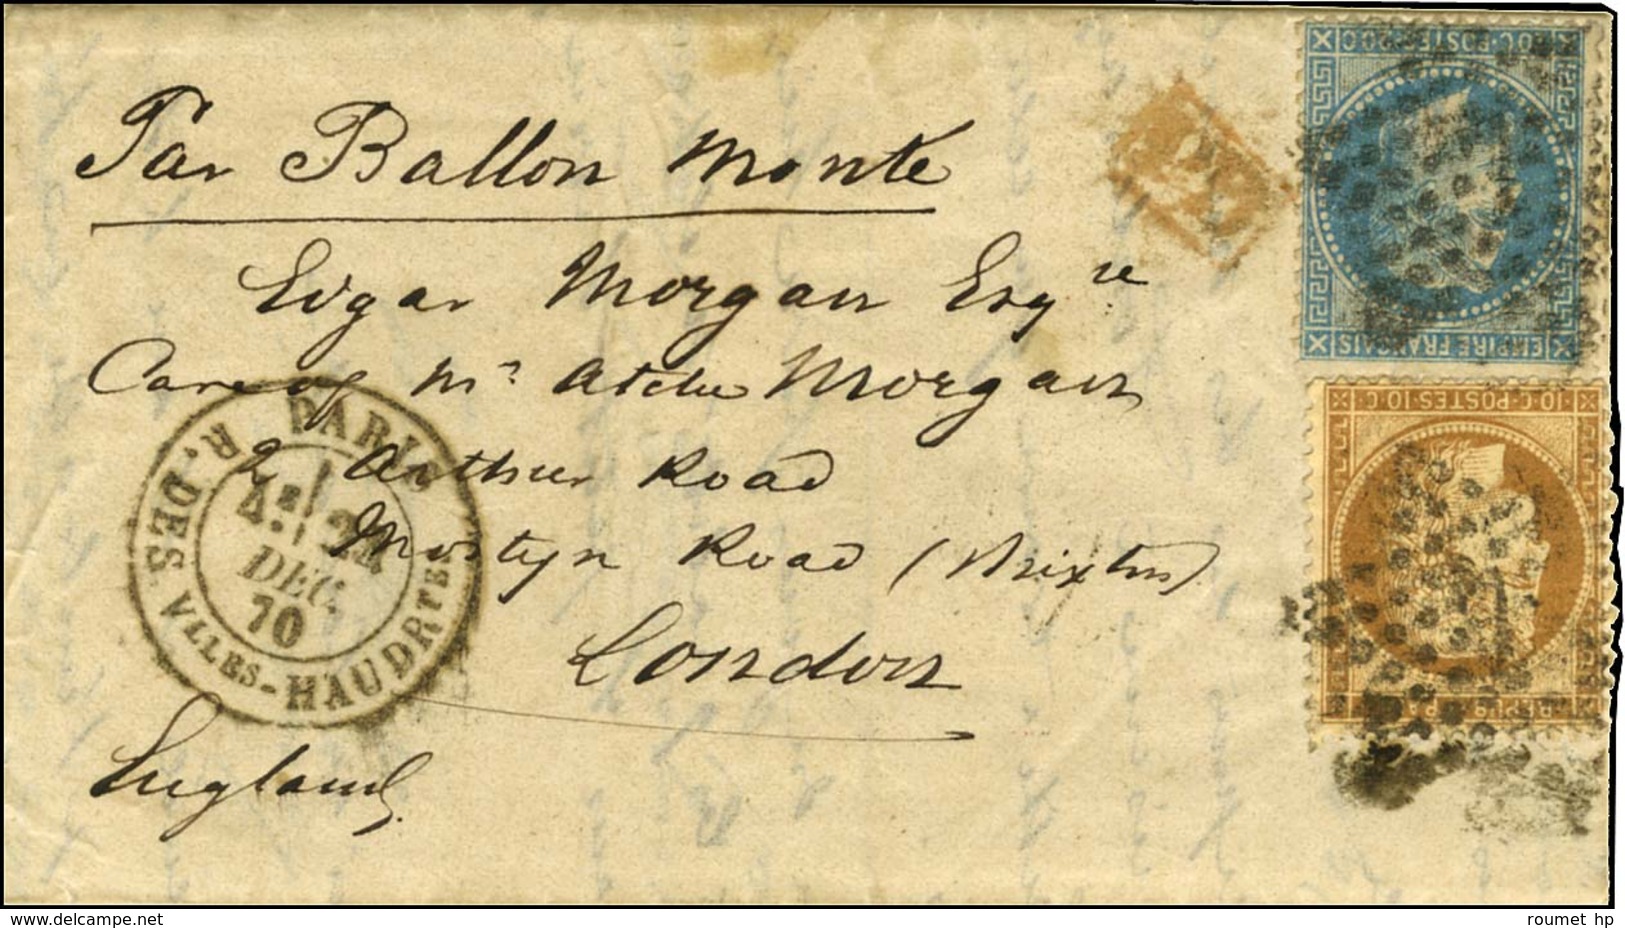 Par Ballon Monté
Edgar Morgan Esqre
Care of Mr Morgan
2 Arthur Road
Mostyn Road (Brixton)
London
England
PARIS
R. DES VLLES-HAUDRTES
DEC.
70
PD
20 C·POSTES·20 C
EMPIRE FRANÇAIS
10·C·POSTES·10·C
roumet hp